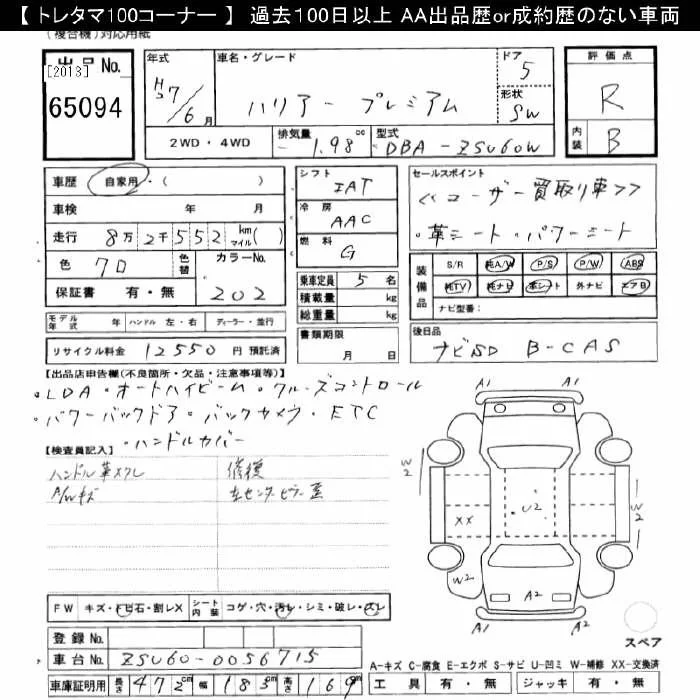 【 トレタマ100コーナー 】 過去100日以上 AA出品歴or成約歴のない車両
(複合機)対応用紙
出品No.
[2013]
65094
年式
H27/6月
車名・グレード
ハリアー プレミアム
ドア
5
形状
SW
2WD・4WD
排気量
1.98 cc
型式
DBA-ZSU60W
評価点
R
内装
B
車歴 自家用・( )
車検 年 月
走行 8万2千552 km マイル( )
色 クロ 色替 カラーNo.
202
保証書 有・無
シフト
IAT
冷房
AAC
燃料
G
乗車定員 5 名
積載量 kg
総重量 kg
セールスポイント
<<ユーザー買取り車>>
・革シート・パワーシート
装備品
S/R 純A/W P/S P/W ABS
純TV 純ナビ 革シート 外ナビ エアB
ナビ型番:
モデル年式 年 ハンドル 左・右 ディーラー・並行
リサイクル料金 12550 円 預託済
書類期限
月 日
後日品
ナビSD B-CAS
【出品店申告欄(不良箇所・欠品・注意事項等)】
・LDA・オートハイビーム・クルーズコントロール
・パワーバックドア・バックカメラ・ETC
・ハンドルカバー
【検査員記入】
ハンドル革スレ 修復
A/Wキズ 左センターピラー歪
A1 A1
W2
W2
XX
U2
W2
A2 A2
A1 A1
スペア
FW キズ・トビ石・割レX シート内装 コゲ・穴・汚レ・シミ・破レ・スレ
登録No.
車台No. ZSU60-0056715
車庫証明用 長さ 472cm 幅 183cm 高さ 169cm
A-キズ C-腐食 E-エクボ S-サビ U-凹ミ W-補修 XX-交換済
工具 有・無 ジャッキ 有・無